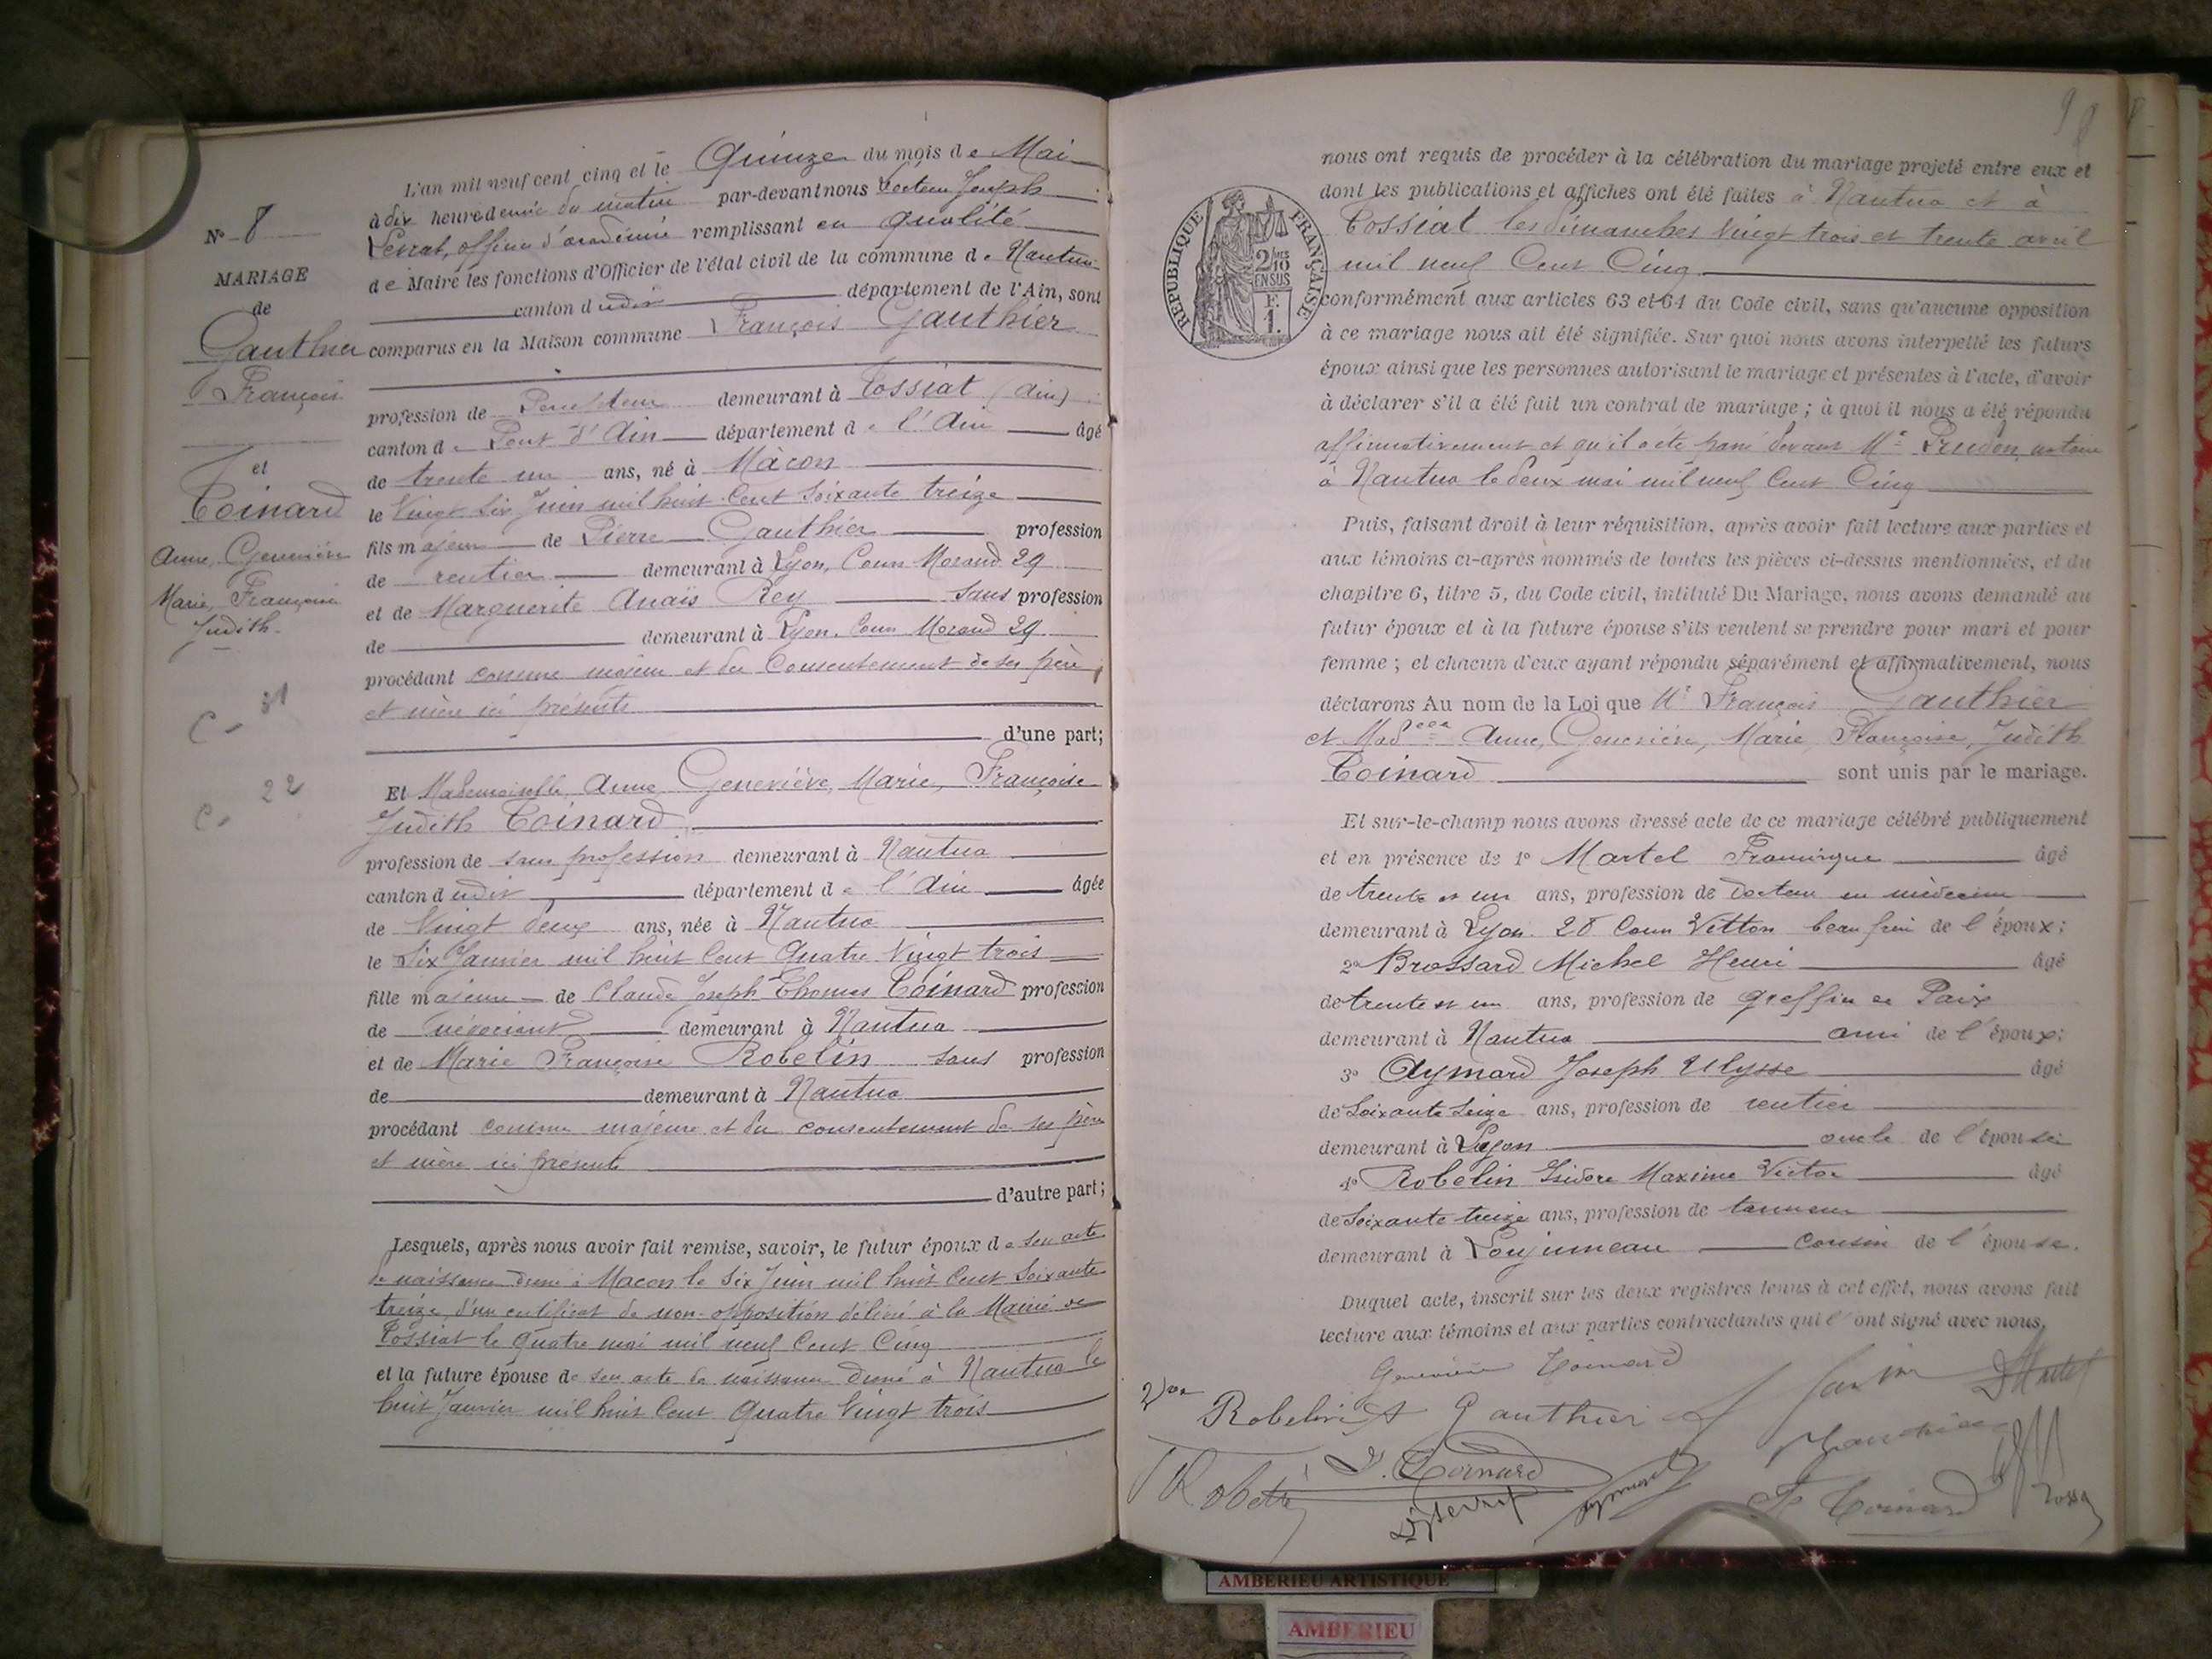 L'an mil neuf cent cinq et le Quinze du mois de Mai
à dix heures demie du matin par-devant nous Docteur Joseph
officier d'académie remplissant en qualité
de Maire les fonctions d'Officier de l'état civil de la commune de Nantua
canton dudit département de l'Ain, sont
comparus en la Maison commune François Gauthier
N° 8
MARIAGE
de
Gauthier
François
et
Toinard
Anne, Geneviève
Marie, Françoise
Judith
C - 31
C. 22
profession de Percepteur demeurant à Tossiat (Ain)
canton de Pont d'Ain département de l'Ain âgé
de trente un ans, né à Mâcon
le Vingt Six Juin mil huit Cent Soixante treize
fils majeur de Pierre Gauthier profession
de rentier demeurant à Lyon, Cours Morand 29
et de Marguerite Anaïs Rey sans profession
de demeurant à Lyon. Cours Morand 29
procédant comme majeur et du Consentement de ses père
et mère ici présents
d'une part;
Et Mademoiselle, Anne, Geneviève, Marie, Françoise
Judith Toinard
profession de sans profession demeurant à Nantua
canton dudit département de l'Ain âgée
de Vingt deux ans, née à Nantua
le Six Janvier mil huit Cent Quatre Vingt trois
fille majeure de Claude Joseph Thomas Toinard profession
de négociant demeurant à Nantua
et de Marie Françoise Robelin sans profession
de demeurant à Nantua
procédant comme majeure et du consentement de ses père
et mère ici présents
d'autre part;
Lesquels, après nous avoir fait remise, savoir, le futur époux de son acte
de naissance dressé à Macon le Six Juin mil huit Cent Soixante
treize, d'un certificat de non-opposition délivré à la Mairie de
Tossiat le Quatre mai mil neuf Cent Cinq
et la future épouse de son acte de naissance dressé à Nantua le
huit Janvier mil huit Cent Quatre Vingt trois
98
nous ont requis de procéder à la célébration du mariage projeté entre eux et
dont les publications et affiches ont été faites à Nantua et à
Tossiat les dimanches Vingt trois et trente avril
mil neuf Cent Cinq
RÉPUBLIQUE FRANÇAISE
2/10 EN SUS
F. 1.
conformément aux articles 63 et 64 du Code civil, sans qu'aucune opposition
à ce mariage nous ait été signifiée. Sur quoi nous avons interpellé les futurs
époux ainsi que les personnes autorisant le mariage et présentes à l'acte, d'avoir
à déclarer s'il a été fait un contrat de mariage; à quoi il nous a été répondu
affirmativement et qu'il a été passé devant Me Prudon, notaire
à Nantua le deux mai mil neuf Cent Cinq
Puis, faisant droit à leur réquisition, après avoir fait lecture aux parties et
aux témoins ci-après nommés de toutes les pièces ci-dessus mentionnées, et du
chapitre 6, titre 5, du Code civil, intitulé Du Mariage, nous avons demandé au
futur époux et à la future épouse s'ils veulent se prendre pour mari et pour
femme; et chacun d'eux ayant répondu séparément et affirmativement, nous
déclarons Au nom de la Loi que Mr François Gauthier
et Madelle Anne, Geneviève, Marie, Françoise, Judith
Toinard sont unis par le mariage.
Et sur-le-champ nous avons dressé acte de ce mariage célébré publiquement
et en présence de 1° Martel âgé
de trente et un ans, profession de docteur en médecine
demeurant à Lyon. 28 Cours Vitton beau frère de l'époux;
2° Brossard Michel Henri âgé
de trente et un ans, profession de greffier de Paix
demeurant à Nantua ami de l'époux;
3° Aymard Joseph Ulysse âgé
de Soixante Seize ans, profession de rentier
demeurant à Lyon oncle de l'épouse
4° Robelin Isidore Maxime Victor âgé
de Soixante treize ans, profession de tanneur
demeurant à Lonjumeau cousin de l'épouse.
Duquel acte, inscrit sur les deux registres tenus à cet effet, nous avons fait
lecture aux témoins et aux parties contractantes qui l'ont signé avec nous.
Geneviève Toinard
Robelin Gauthier Martel
Gauthier
Toinard
Aymard
Toinard
AMBERIEU ARTISTIQUE
AMBERIEU